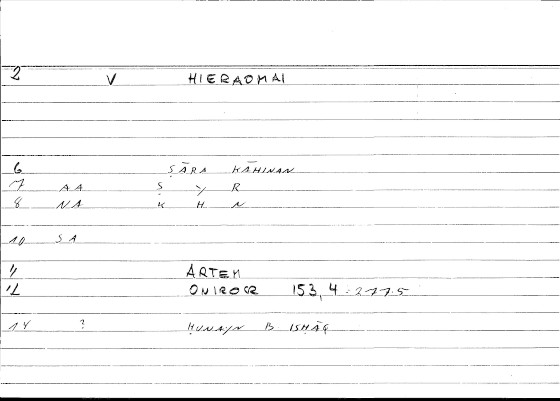 2 V HIERAOMAI
6 ṢĀRA KĀHINAN
7 AA Ṣ Y R
8 NA K H N
10 SA
11 ARTEM
12 ONIROCR 153, 4 - 277.5
14 ? ḤUNAYN B ISḤĀQ